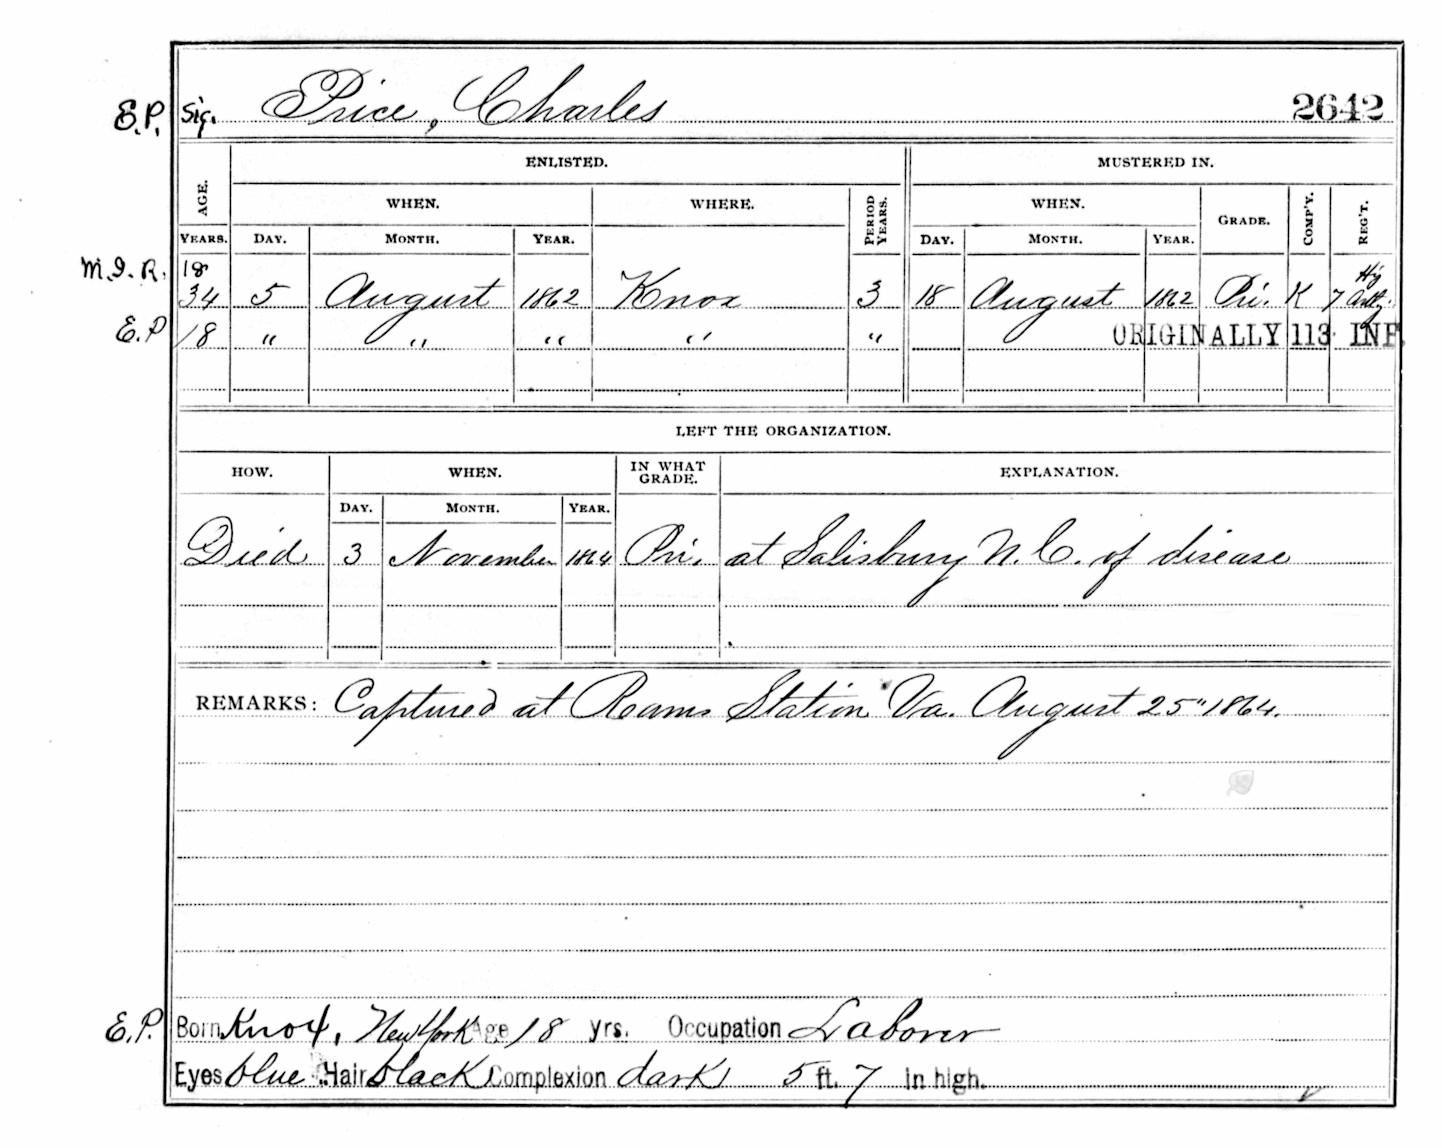 E.P. Sig. Price, Charles 2642
ENLISTED. MUSTERED IN.
AGE. WHEN. WHERE. PERIOD YEARS. WHEN. GRADE. COMP'Y. REG'T.
YEARS. DAY. MONTH. YEAR. DAY. MONTH. YEAR.
M.I.R. 18 Hy
34 5 August 1862 Knox 3 18 August 1862 Pri. K 7 Arty.
E.P 18 " " " " " ORIGINALLY 113 INF.
LEFT THE ORGANIZATION.
HOW. WHEN. IN WHAT GRADE. EXPLANATION.
DAY. MONTH. YEAR.
Died 3 November 1864 Pri. at Salisbury N.C. of disease
REMARKS: Captured at Reams Station Va. August 25" 1864.
E.P. Born Knox, New York Age 18 yrs. Occupation Laborer
Eyes blue Hair black Complexion dark 5 ft. 7 in high.